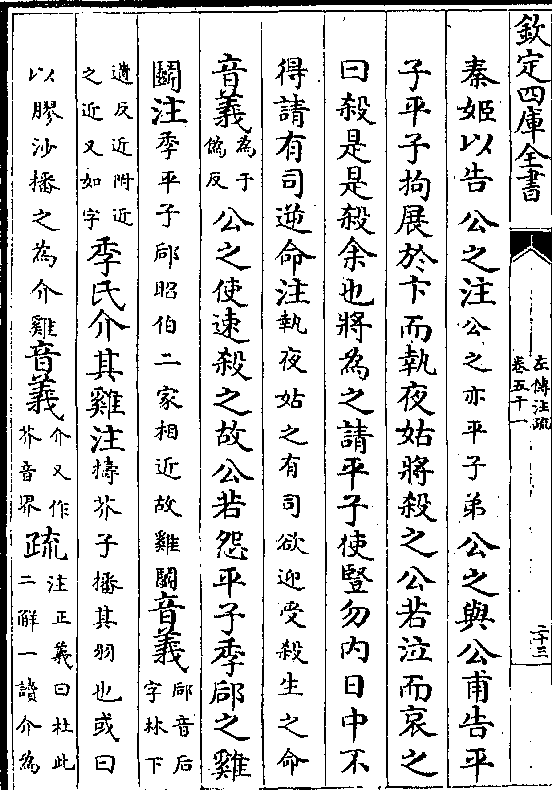 欽定四庫全書
左傳注疏
卷五十一
二十三
秦姬以告公之注公之亦平子弟公之與公甫告平
子平子拘展於卞而執夜姑將殺之公若泣而哀之
曰殺是是殺余也將為之請平子使豎勿内日中不
得請有司逆命注執夜姑之有司欲迎受殺生之命
音義為于偽反公之使速殺之故公若怨平子季郈之雞
鬭注季平子郈昭伯二家相近故雞鬭音義郈音后字林下
遘反近附近之近又如字季氏介其雞注擣芥子播其羽也或曰
以膠沙播之為介雞音義介又作芥音界疏注正義曰杜此二解一讀介為